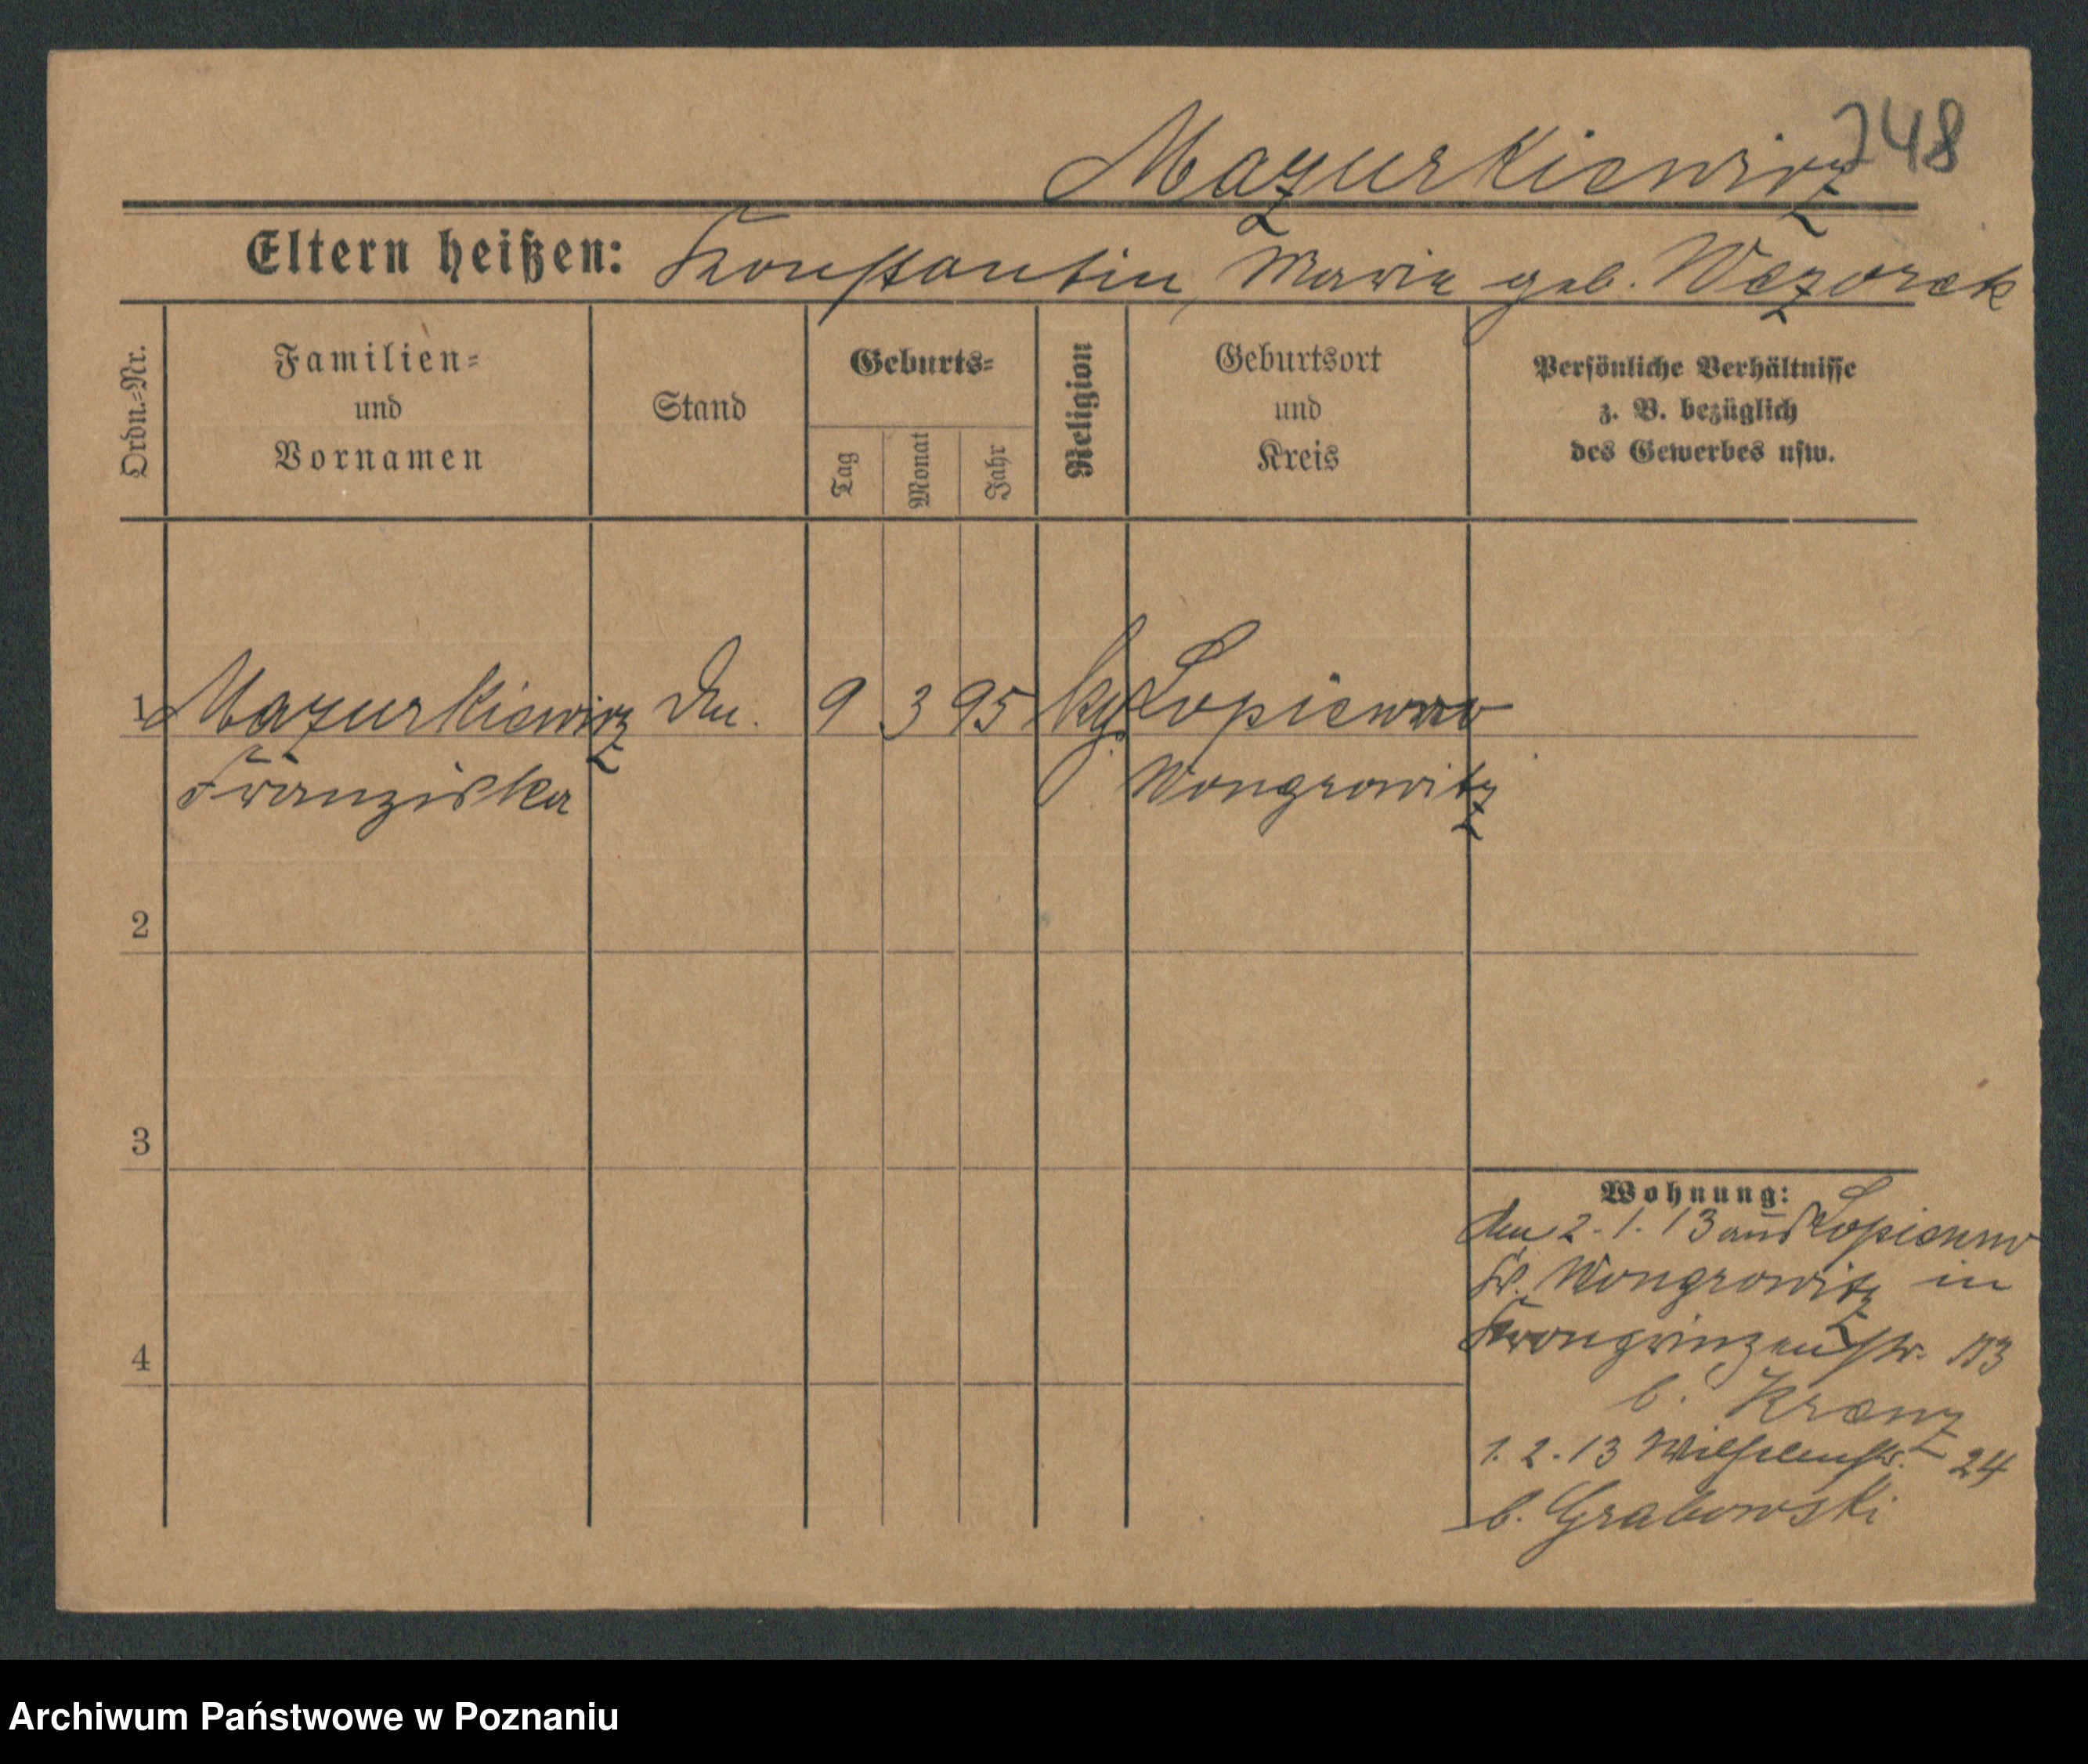 Mazurkiewicz 248
Eltern heißen: Konstantin, Maria geb. Wezorek
Ordn.-Nr.
Familien-
und
Vornamen
Stand
Geburts-
Tag
Monat
Jahr
Religion
Geburtsort
und
Kreis
Persönliche Verhältnisse
z. B. bezüglich
des Gewerbes usw.
1 Mazurkiewicz 9 3 95 Lopienno
Franziska Wongrowitz
2
3
4
Wohnung:
den 2.1.13 aus Lopienno
Kr. Wongrowitz in
Kronprinzenstr. 113
b. Kranz
1.2.13 Wilhelmstr. 24
b. Grabowski
Archiwum Państwowe w Poznaniu